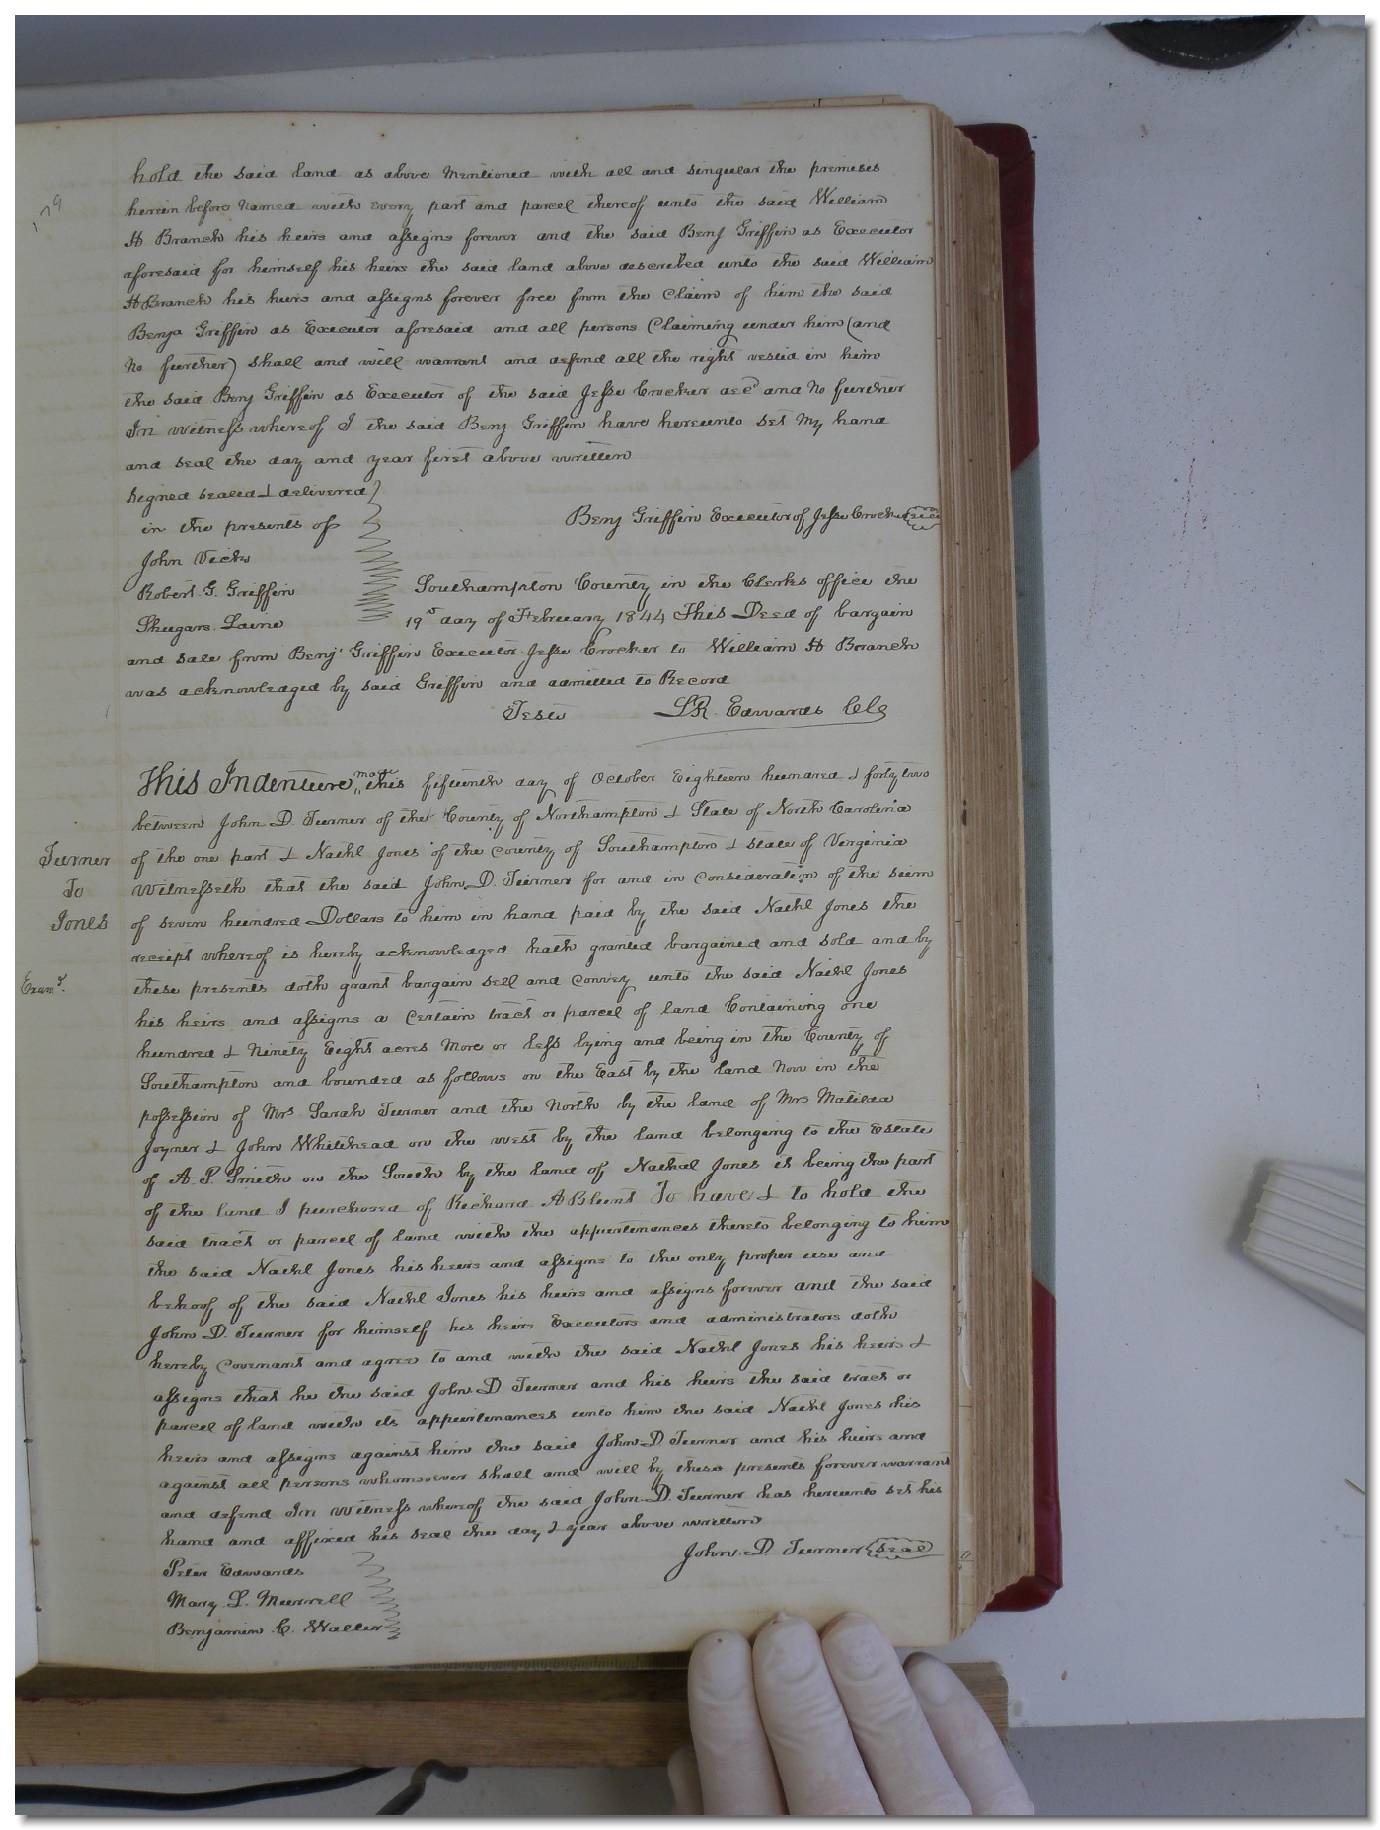 hold the said land as above Mentioned with all and singular the premises
herein before Named with every part and parcel thereof unto the said William
H Branch his heirs and assigns forever and the said Benj Griffin as Executor
aforesaid for himself his heirs the said land above described unto the said William
H Branch his heirs and assigns forever free from the Claim of him the said
Benja Griffin as Executor aforesaid and all persons Claiming under him (and
No further) shall and will warrant and defend all the right vested in him
the said Benj Griffin as Executor of the said Jesse Crocker decd and No further
In witness whereof I the said Benj Griffin have hereunto set My hand
and seal the day and year first above written
Signed sealed & delivered
in the presents of
Benj Griffin Executor of Jesse Crocker seal
John Vicks
Robert. G. Griffin
Shugars. Laine
Southampton County in the Clerks office the
19th day of February 1844 This Deed of bargain
and sale from Benj Griffin Executor Jesse Crocker to William H Branch
was acknowledged by said Griffin and admitted to Record
Teste L R. Edwards Clk
This Indenture made this fifteenth day of October Eighteen hundred & forty two
between John D. Turner of the County of Northampton & State of North Carolina
Turner
To
Jones
Examd.
of the one part & Nathl Jones of the County of Southampton & state of Virginia
Witnesseth that the said John D. Turner for and in Consideration of the sum
of seven hundred Dollars to him in hand paid by the said Nathl Jones the
receipt whereof is hereby acknowledged hath granted bargained and sold and by
these presents doth grant bargain sell and Convey unto the said Nathl Jones
his heirs and assigns a Certain tract or parcel of land Containing one
hundred & Ninety Eight acres More or less lying and being in the County of
Southampton and bounded as follows on the East by the land Now in the
possession of Mrs Sarah Turner and the North by the land of Mrs Matilda
Joyner & John Whitehead on the west by the land belonging to the Estate
of A. P. Smith on the South by the land of Nathal Jones it being the part
of the land I purchased of Richard A Blunt To have & to hold the
said tract or parcel of land with the appurtenances thereto belonging to him
the said Nathl Jones his heirs and assigns to the only proper use and
behoof of the said Nathl Jones his heirs and assigns forever and the said
John D. Turner for himself his heirs Executors and administrators doth
hereby Covenant and agree to and with the said Nathl Jones his heirs &
assigns that he the said John D Turner and his heirs the said tract or
parcel of land with its appurtenances unto him the said Nathl Jones his
heirs and assigns against him the said John D. Turner and his heirs and
against all persons whomsoever shall and will by these presents forever warrant
and defend In witness whereof the said John D. Turner has hereunto set his
hand and affixed his seal the day & year above written
John. D. Turner seal
Peter Edwards
Mary. L. Murrell
Benjamin. C. Waller